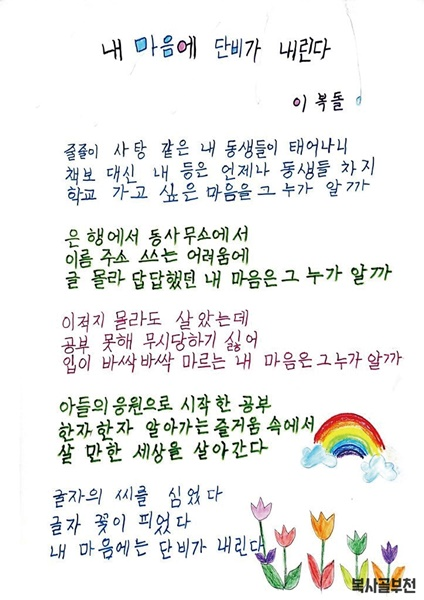 내 마음에 단비가 내린다
이복돌
줄줄이 사탕 같은 내 동생들이 태어나니
책보 대신 내 등은 언제나 동생들 차지
학교 가고 싶은 마음을 그 누가 알까
은행에서 동사무소에서
이름 주소 쓰는 어려움에
글 몰라 답답했던 내 마음은 그 누가 알까
이적지 몰라도 살았는데
공부 못해 무시당하기 싫어
입이 바싹바싹 마르는 내 마음은 그 누가 알까
아들의 응원으로 시작한 공부
한자한자 알아가는 즐거움 속에서
살 만한 세상을 살아간다
글자의 씨를 심었다
글자 꽃이 피었다
내 마음에는 단비가 내린다
복사골부천